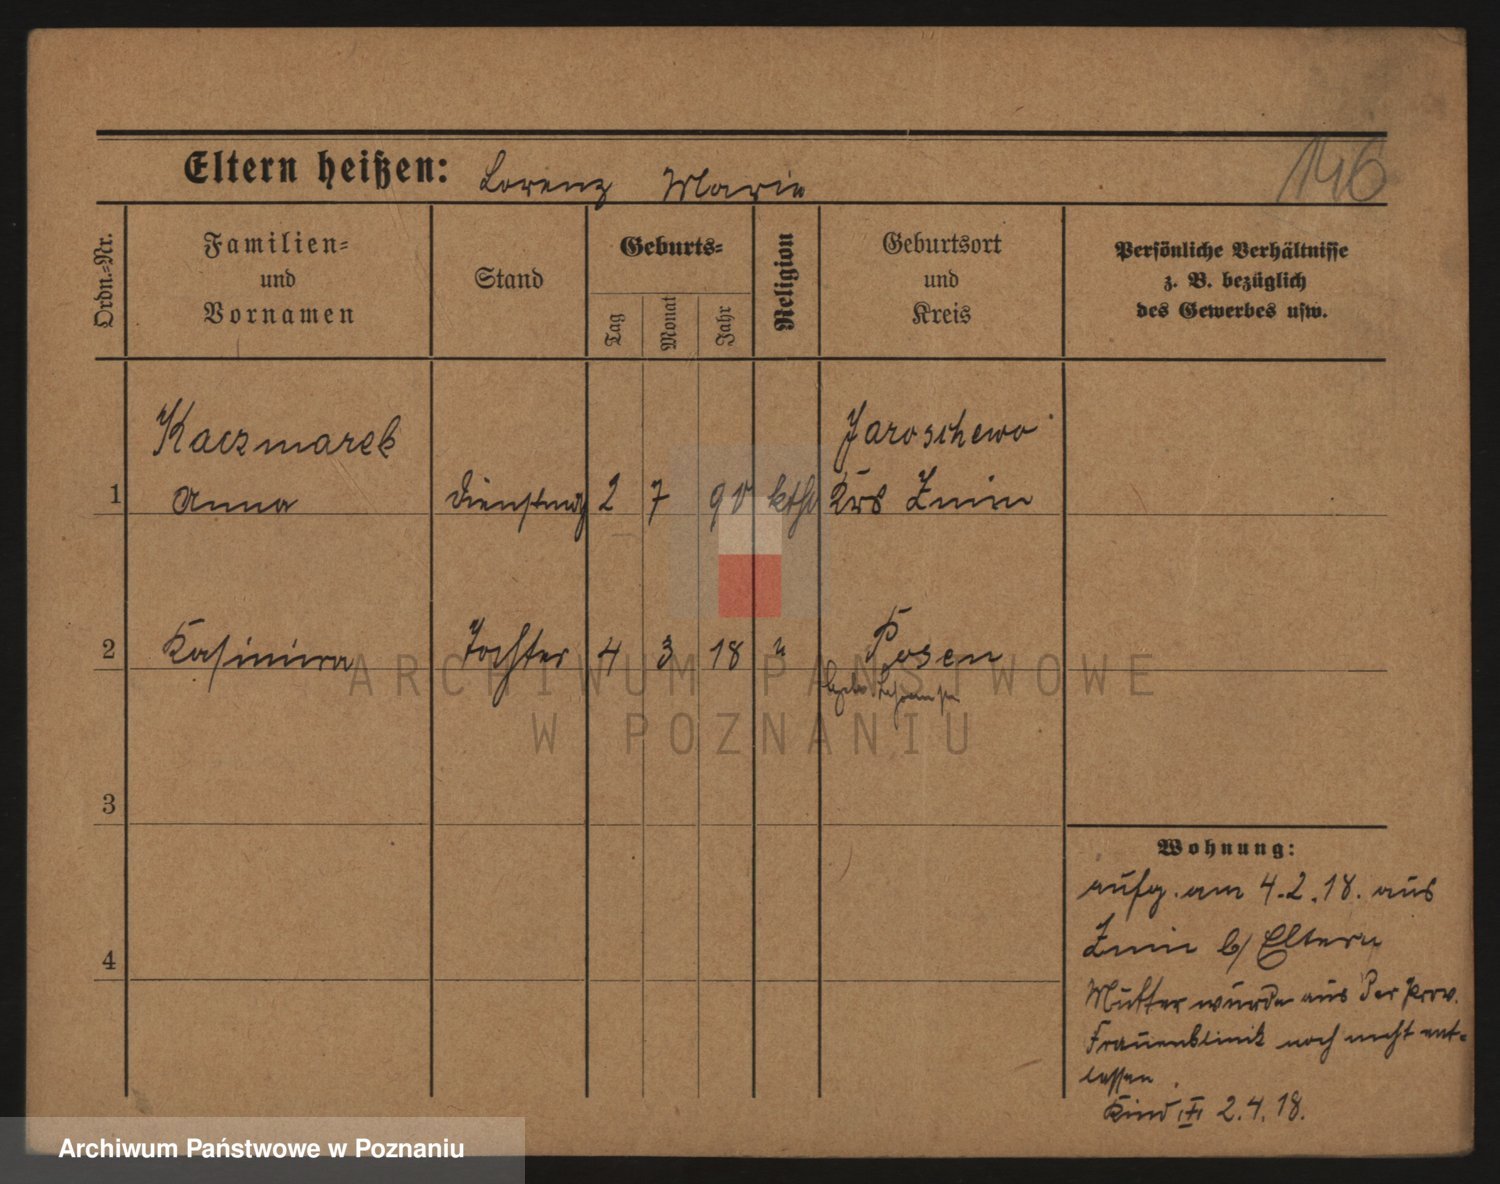 146
Eltern heißen: Lorenz Marie
Ordn.-Nr.
Familien-
und
Vornamen
Stand
Geburts-
Tag
Monat
Jahr
Religion
Geburtsort
und
Kreis
Persönliche Verhältnisse
z. B. bezüglich
des Gewerbes usw.
Kaczmarek Jaroschewo
1 Anna Dienstmdg 2 7 90 kth Krs Znin
2 Kasimira Tochter 4 3 18 " Posen
ARCHIWUM PAŃSTWOWE
W POZNANIU
3
Wohnung:
aufg. am 4.2.18. aus
4 Znin b/ Eltern
Mutter wurde aus der Prov.
Frauenklinik noch nicht ent-
lassen.
Kind 2.4.18.
Archiwum Państwowe w Poznaniu